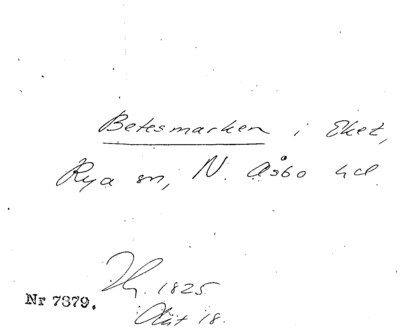 Betesmarken i Eket,
Rya sn, N. Åsbo hd
1825
Nr 7379.
18.